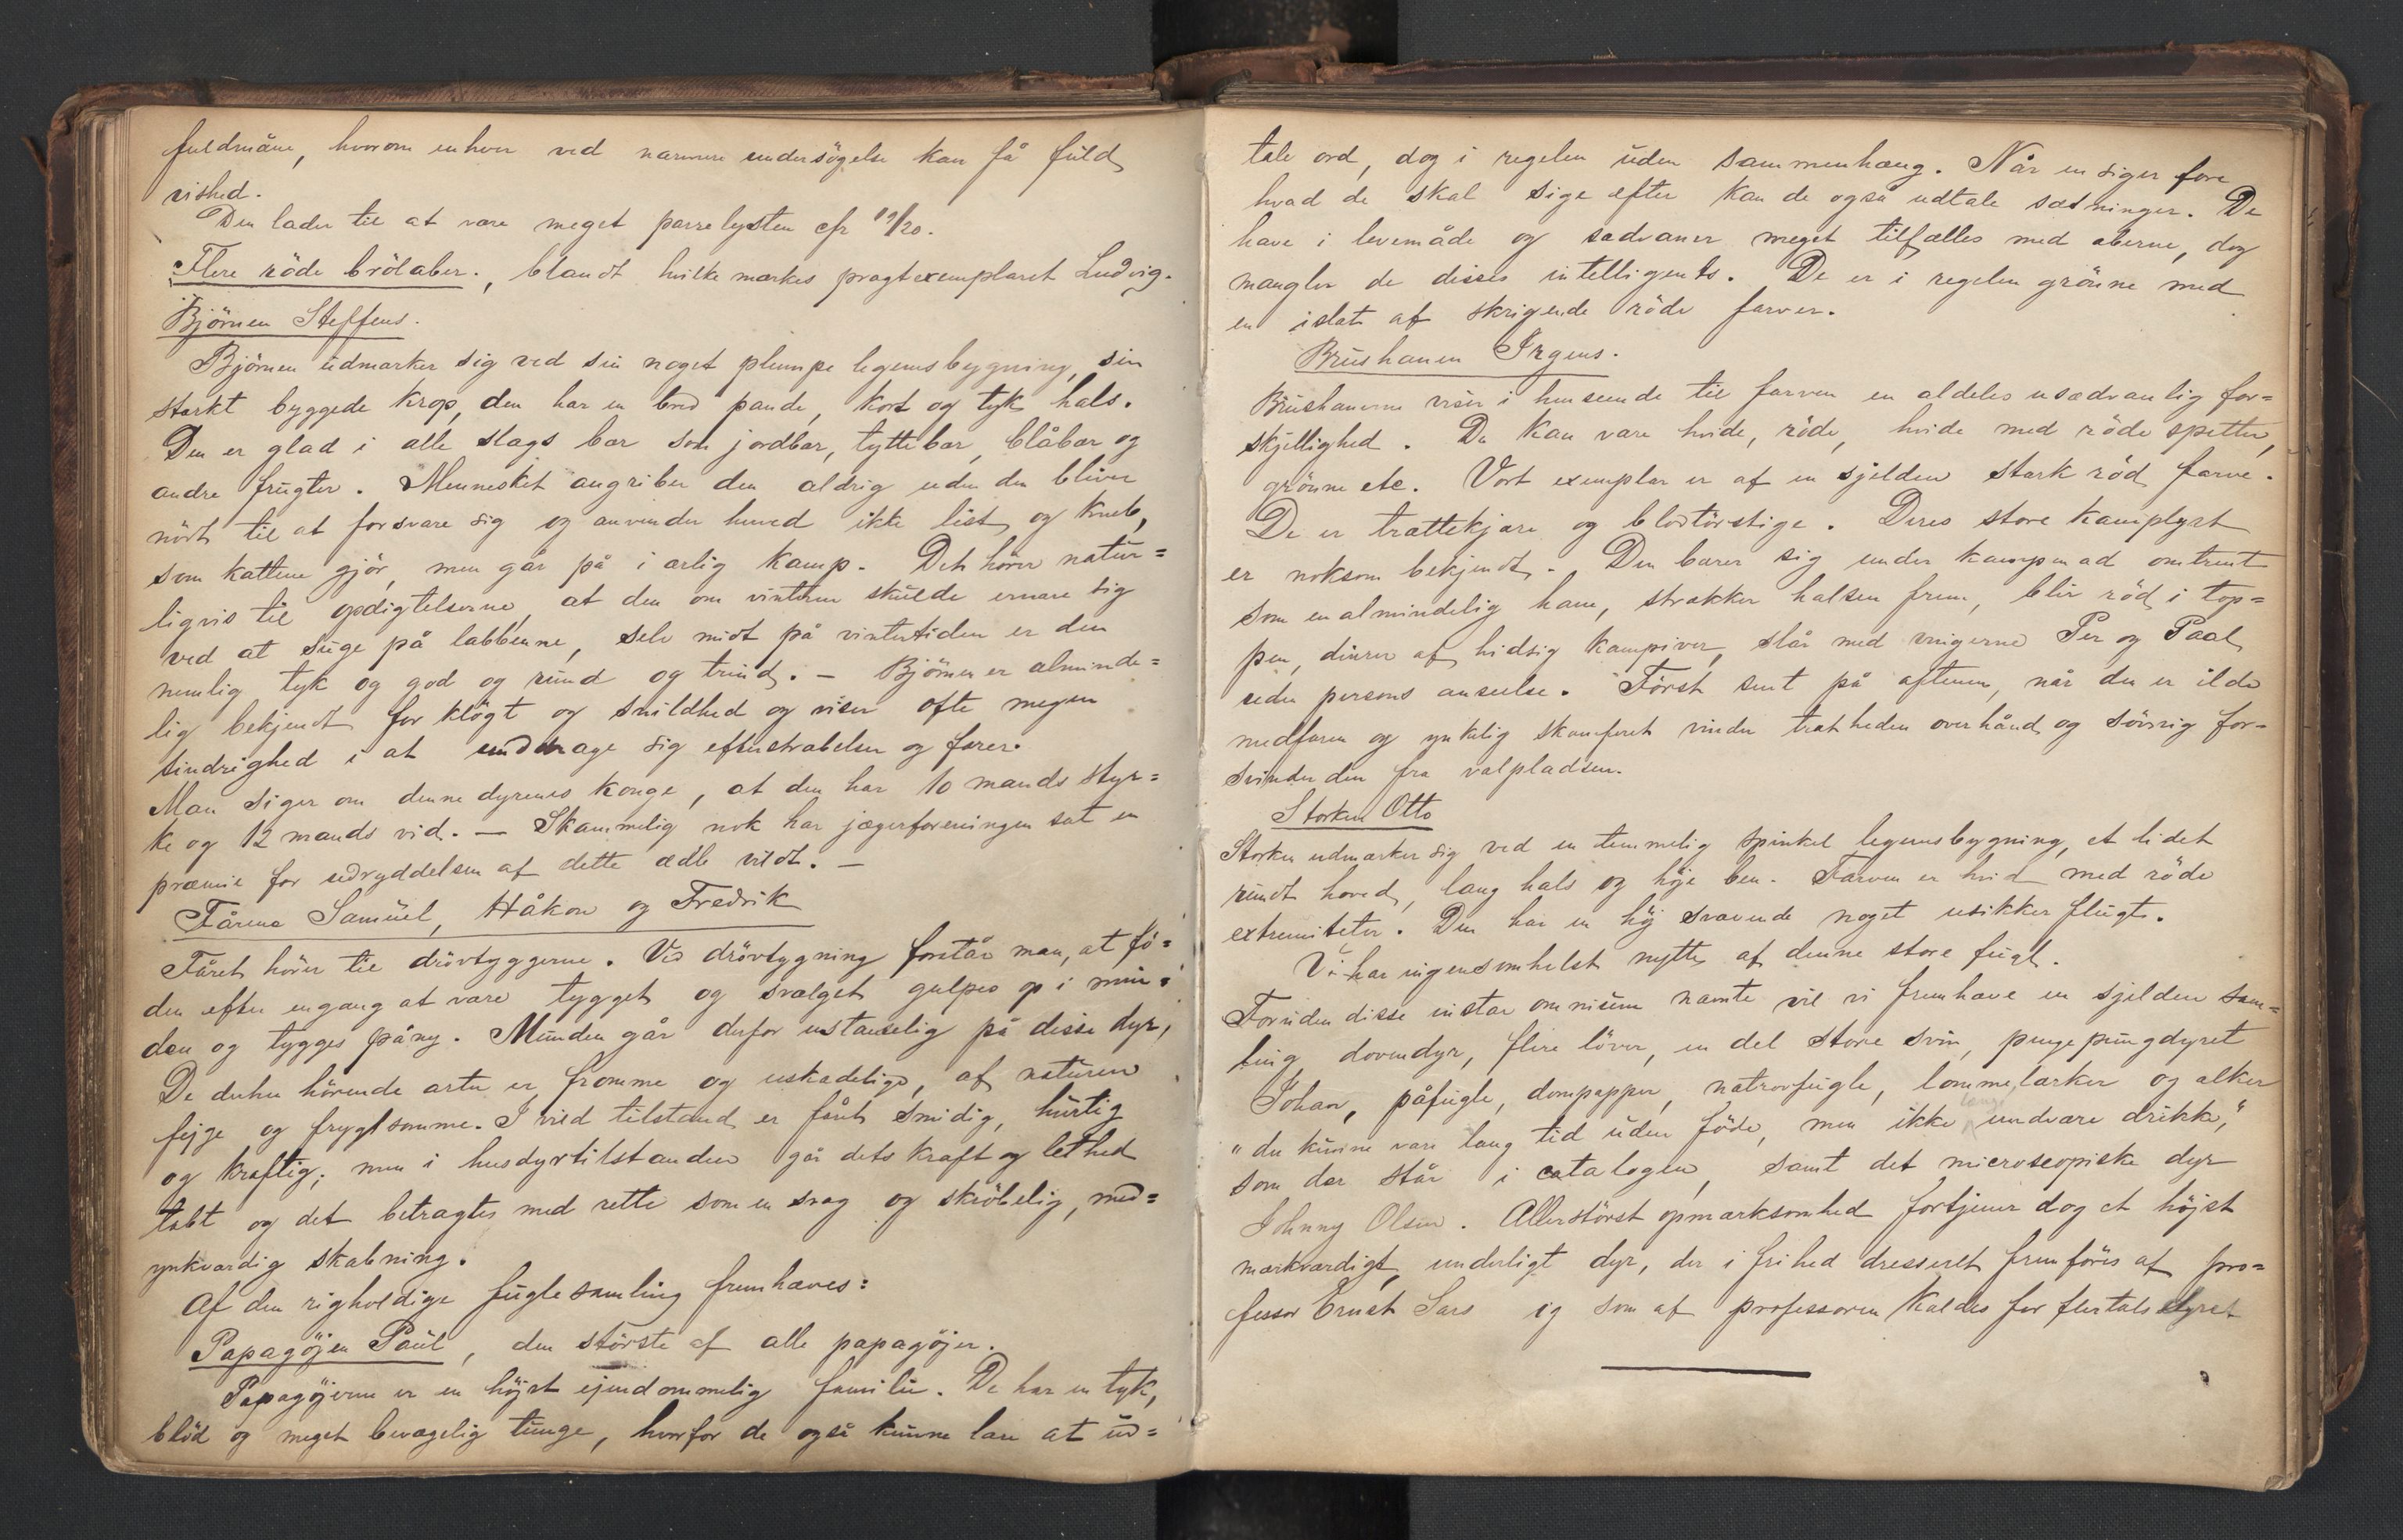 fuldmåne, hvorom enhver ved nærmere undersögelse kan få fuld
vished.
Den lader til at være meget parrelysten cfr 19/20.
Flere röde brölaber., blandt hvilke mærkes pragtexemplaret Ludvig.
Björnen Steffens.
Björnen udmærker sig ved sin noget plumpe legemsbygning, sin
stærkt byggede krop, den har en bred pande, kort og tyk hals.
Den er glad i alle slags bær som jordbær, tyttebær, blåbær og
andre frugter. Mennesket angriber den aldrig uden den bliver
nödt til at forsvare sig og anvender herved ikke list og kneb,
som kattene gjör, men går på i ærlig kamp. Det hører natur=
ligvis til opdigtelserne, at den om vinteren skulde ernære sig
ved at suge på labbenne, selv midt på vintertiden er den
nemlig tyk og god og rund og trind. – Björnen er alminde=
lig bekjendt for klögt og snildhed og viser ofte megen
sindrighed i at unddrage sig efterstræbelser og farer.
Man siger om denne dyrenes konge, at den har 10 mands styr=
ke og 12 mands vid. — Skammelig nok har jægerforeningen sat en
præmie for udryddelsen af dette ædle vildt. –
Fårene Samuel, Håkon og Fredrik
Fåret hörer til drövtyggerne. Ved drövtygning forstår man, at fö=
den efter engang at være tygget og svælget gulpes op i mun=
den og tygges påny. Munden går derfor ustanselig på disse dyr,
De derhen hörende arter er fromme og uskadelige, af naturen
fejge og frygtsomme. I vild tilstand er fåret smidig, hurtig
og kraftig; men i husdyrtilstanden går dets kraft og lethed
tabt og det betragtes med rette som en svag og skröbelig, med=
ynkværdig skabning.
Af den righoldige fuglesamling fremhæves:
Papagöjen Paul, den störste af alle papagöjer.
Papagöjerne er en höjst ejendommelig familie. De har en tyk,
blöd og meget bevægelig tunge, hvorfor de også kunne lære at ud=
tale ord, dog i regelen uden sammenhæng. Når en siger fore
hvad de skal sige efter kan de også udtale sætninger. De
have i levemåde og sædvaner meget tilfælles med aberne, dog
mangler de disses intelligents. De er i regelen grönne med
en islæt af skrigende röde farver.
Brushanen Irgens.
Brushanerne viser i henseende til farven en aldeles usædvanlig for=
skjellighed. De kan være hvide, röde, hvide med röde spetter,
grönne etc. Vort exemplar er af en sjelden stærk röd farve.
De er trættekjære og blodtörstige. Deres store kamplyst
er noksom bekjendt. Den bærer sig under kampen ad omtrent
som en almindelig hane, strækker halsen frem, blir röd i top=
pen, dirrer af hidsig kampiver, slår med vingerne Per og Paal
uden persons anseelse. Först sent på aftenen, når den er ilde
medfaren og ynkelig skamferet vinder trætheden overhånd og sövnig for=
svinder den fra valpladsen.
Storken Otto
Storken udmærker sig ved en temmelig spinkel legemsbygning, et lidet
rundt hoved, lang hals og höje ben. Farven er hvid med röde
extremiteter. Den har en höj svævende noget usikker flugt.
Vi har ingensomhelst nytte af denne store fugl.
Foruden disse instar omnium nævnte vil vi fremhæve en sjelden sam=
ling dovendyr, flere löver, en del store svin, pungdyret
Johan, påfugle, dompapper, natravfugle, lommelærker og alker
"der kunne være lang tid uden föde, men ikke længe undvære drikke,"
som der står i catalogen, samt det microscopiske dyr
Johnny Olsen. Allerstörst opmærksomhed fortjener dog et höjst
mærkværdigt, underligt dyr, der i frihed dresseret fremföres af pro=
fessor Ernst Sars og som af professoren kaldes for flertalsdyret